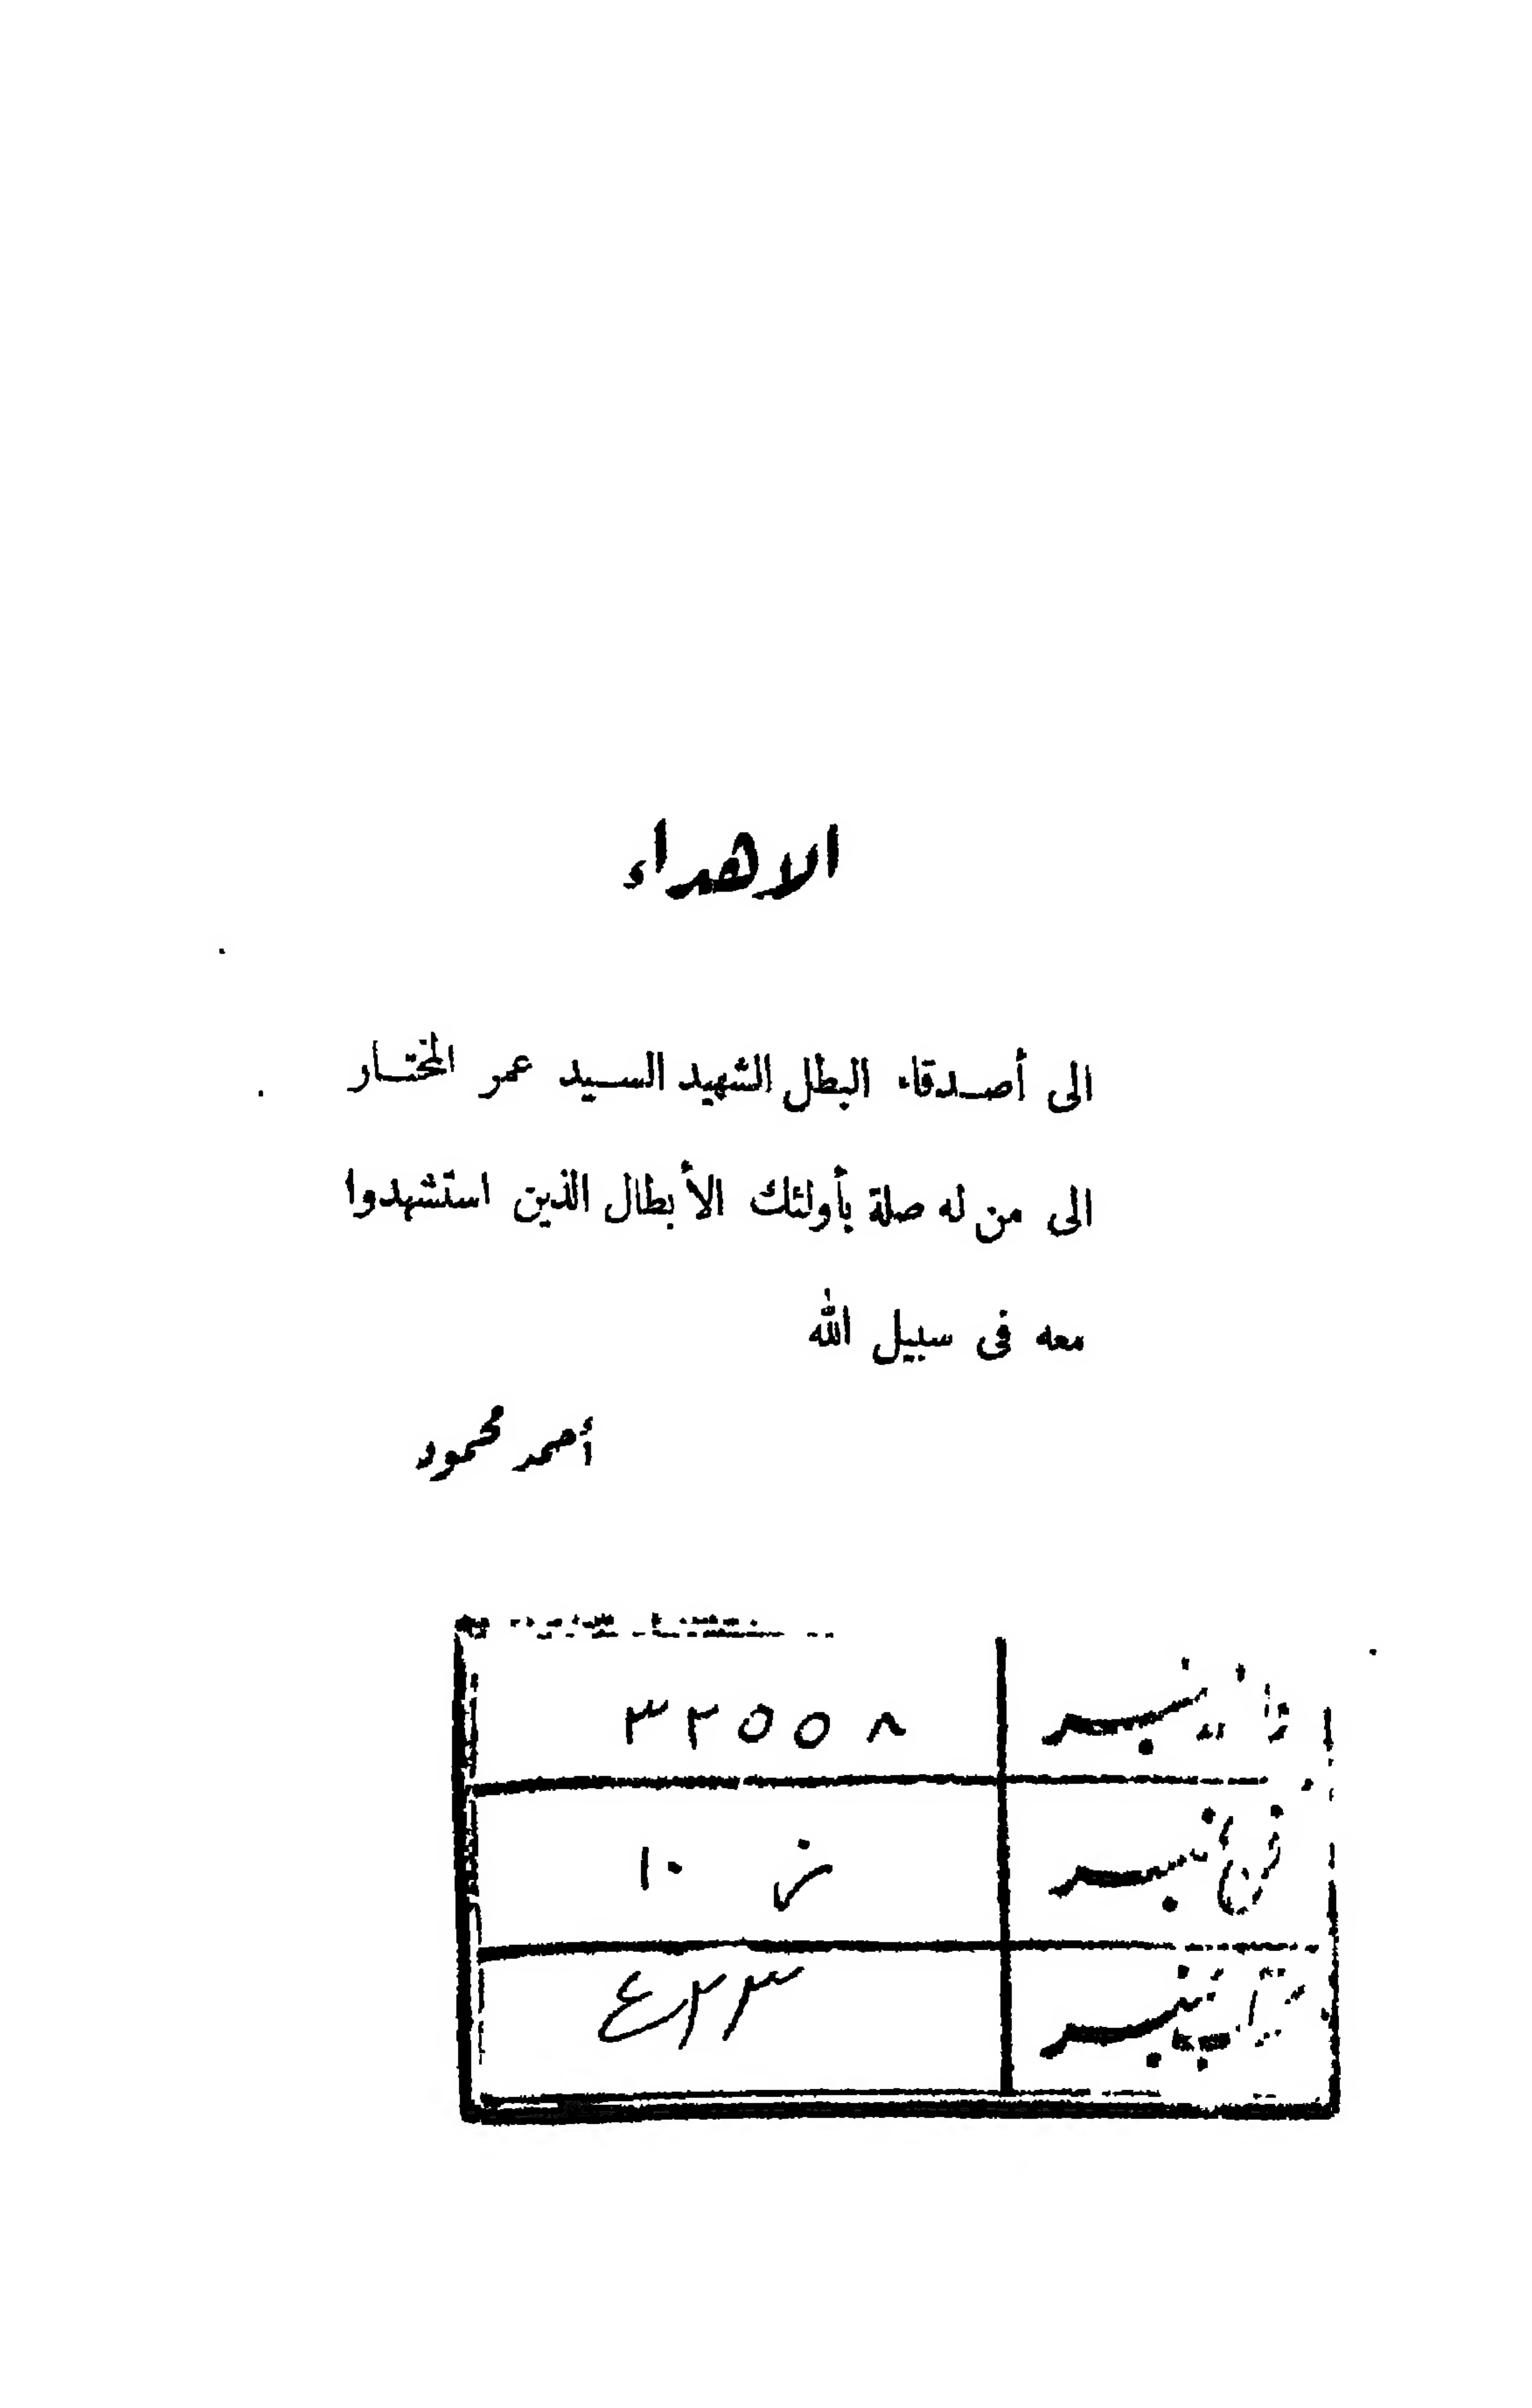 الاهداء
الى أصدقاء البطل الشهيد السيد عمر المختار
الى من له صلة بأولئك الأبطال الذين استشهدوا
معه فى سبيل الله
أحمد محمود
٣٢٥٥٨
فن نمبر ز ١٠
نمبر ٤٢٣